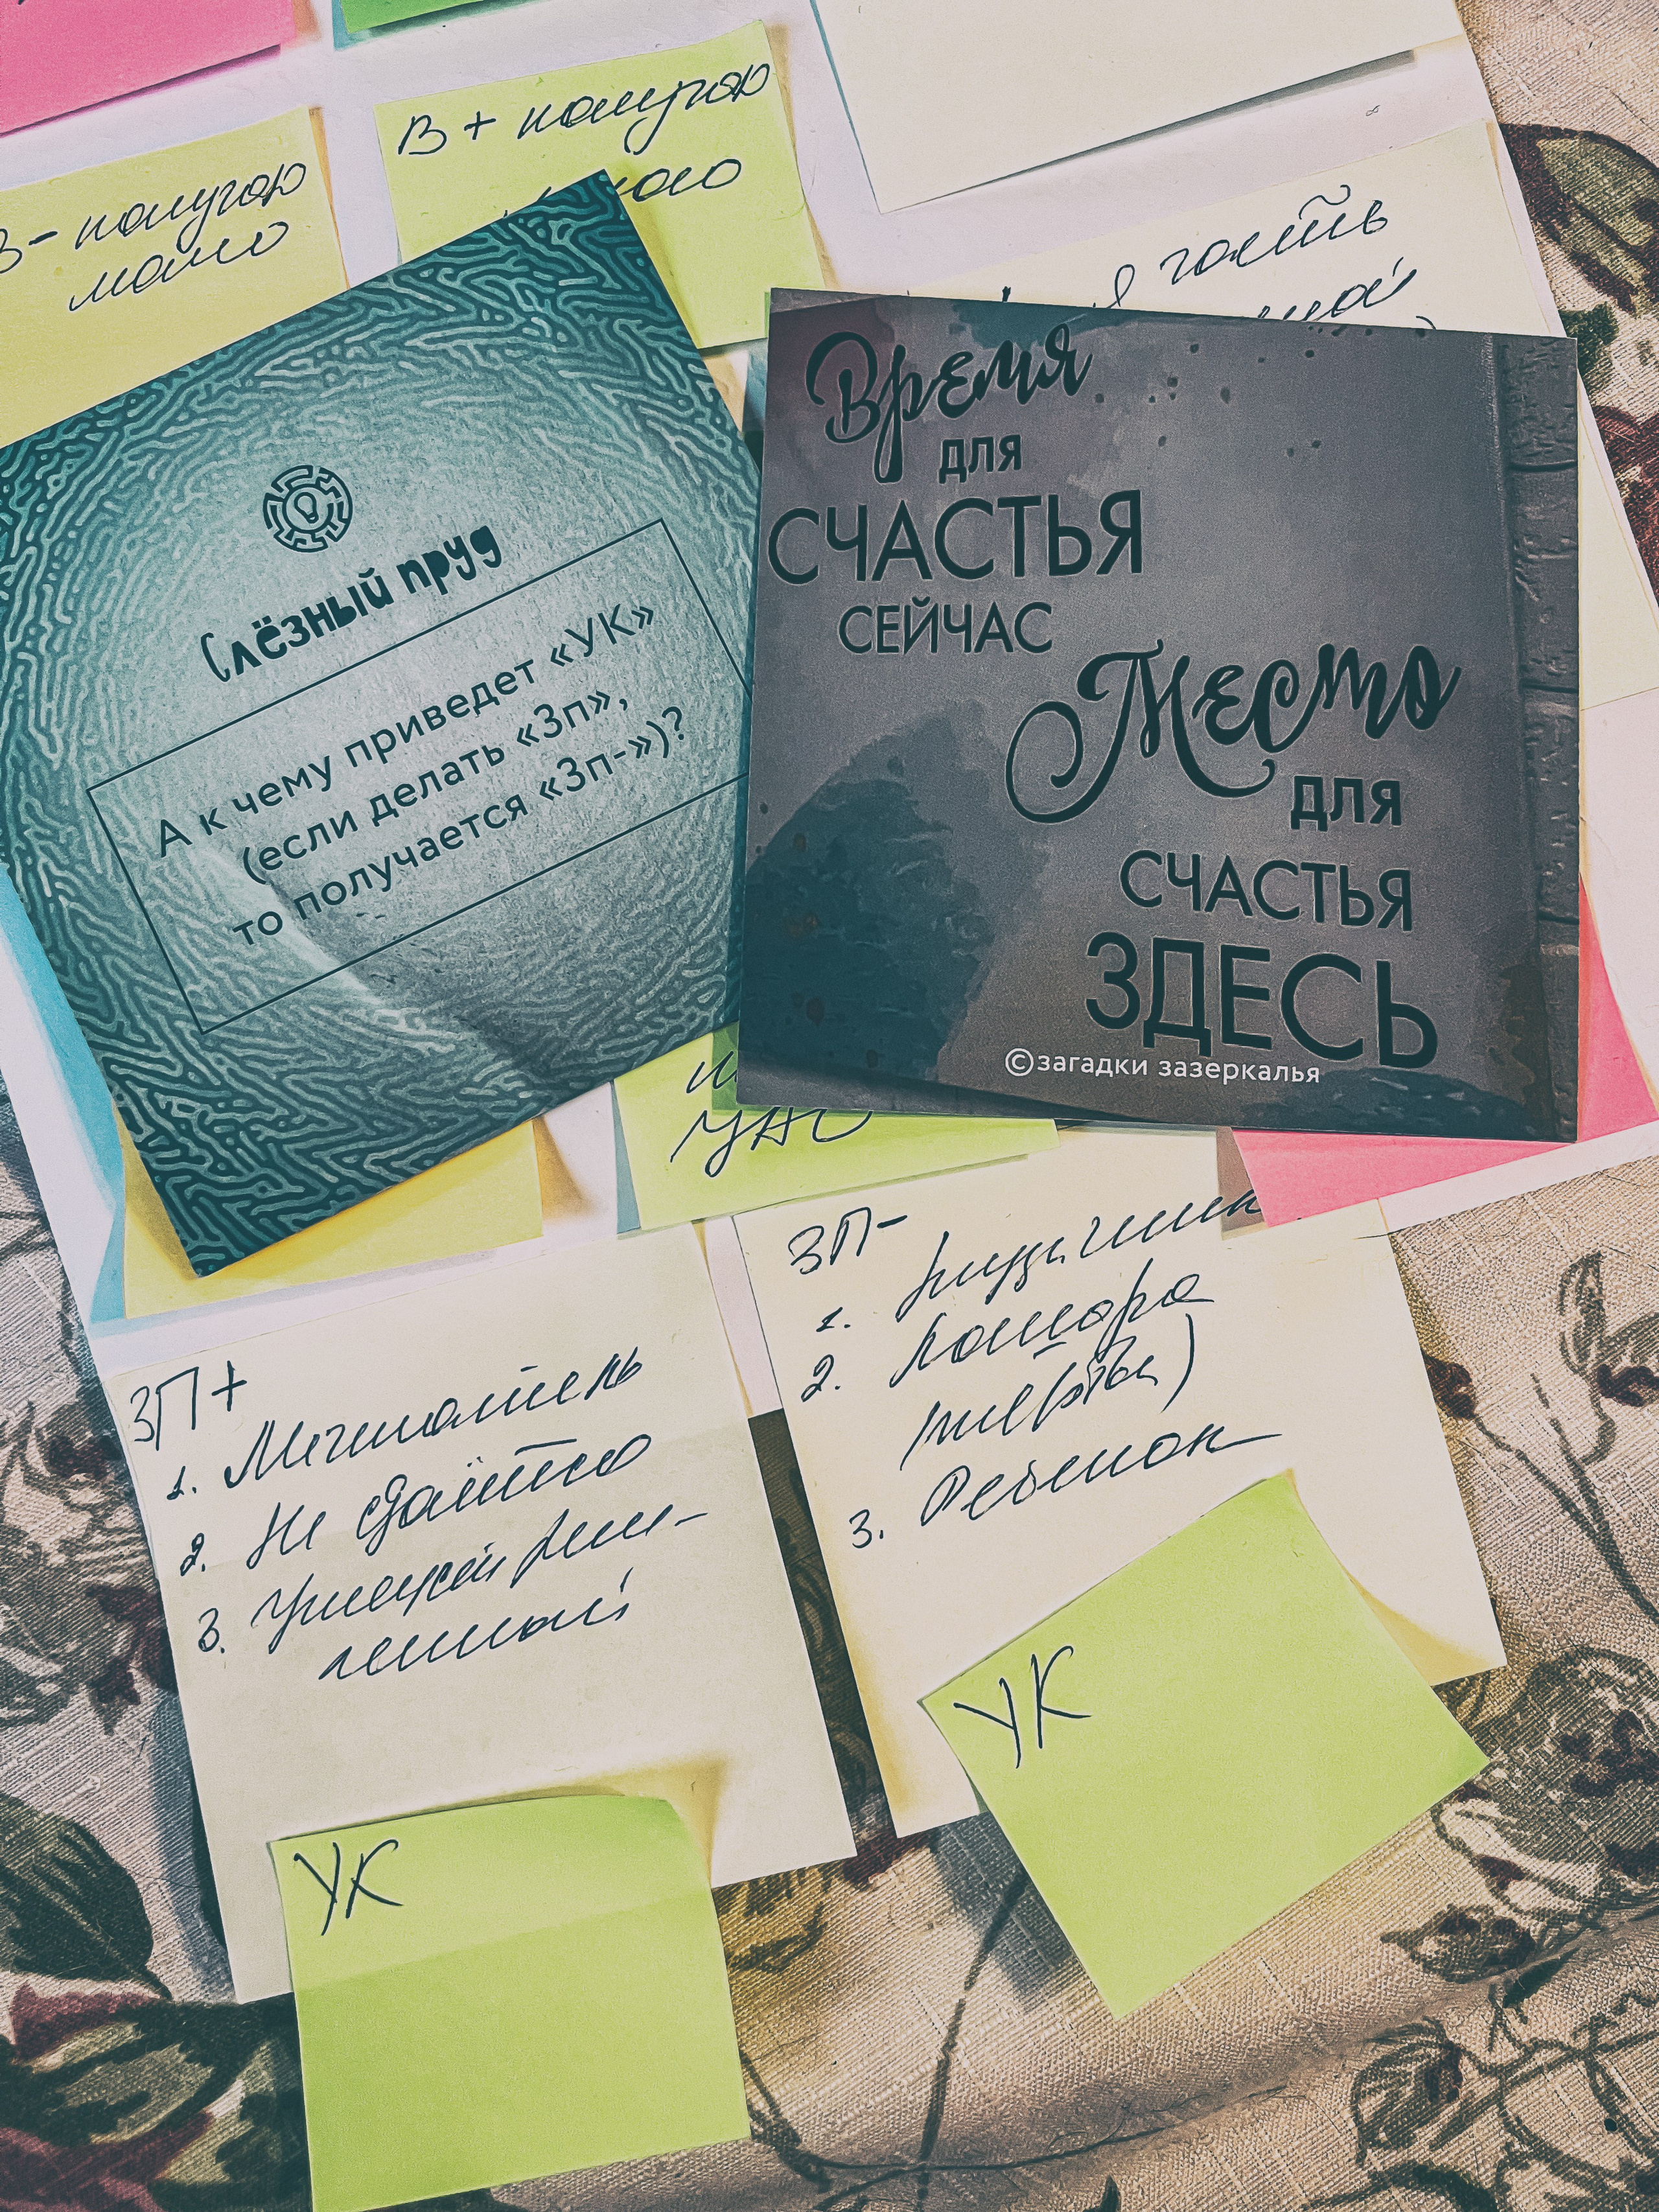 В + получаю
В - получаю
мало
гость
Слёзный пруд
А к чему приведет «УК»
(если делать «Зп»,
то получается «Зп-»)?
Время
для
СЧАСТЬЯ
СЕЙЧАС
Место
для
СЧАСТЬЯ
ЗДЕСЬ
©загадки зазеркалья
ЗП+
1. Мечтатель
2. Не сдаётся
3.
ЗП-
1.
2.
3. Ребенок
УК
УК